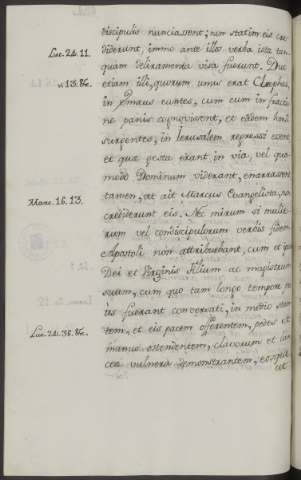 discipulis nunciavent; non statim eis cre
diderunt, immo ante illos verba ista tan
Luc. 24. 11.
quam deliramenta visa fuerunt. Duo
etiam illi, quorum unus erat Cleophas,
v. 13. &c.
in Emaus euntes, cum eum in fractio
ne panis cognovissent, et eadem hora
surgentes, in Jerusalem regressi essent
et quæ gesta erant in via, vel quo
modo Dominum viderant, enarrarent
Marc. 16. 13.
tamen, ut ait Marcus Evangelista, non
crediderunt eis. Nec mirum si mulie
rum vel condiscipulorum verbis fidem
Apostoli non attribuebant, cum et ipsum
Dei et Virginis filium ac magistrum
suum, cum quo tam longo tempore
tis fuerant conversati, in medio stan
Luc. 24. 36. &c.
tem, et eis pacem offerentem, pedes et
manus ostendentem, clavorum et lan
cea vulnera demonstrantem,